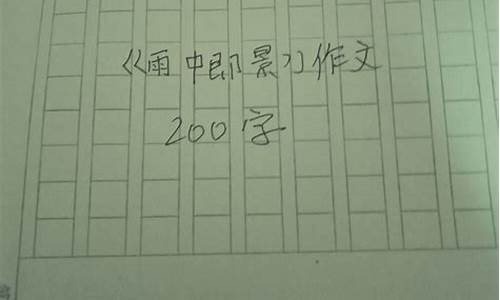 《雨中即景》作文
200字